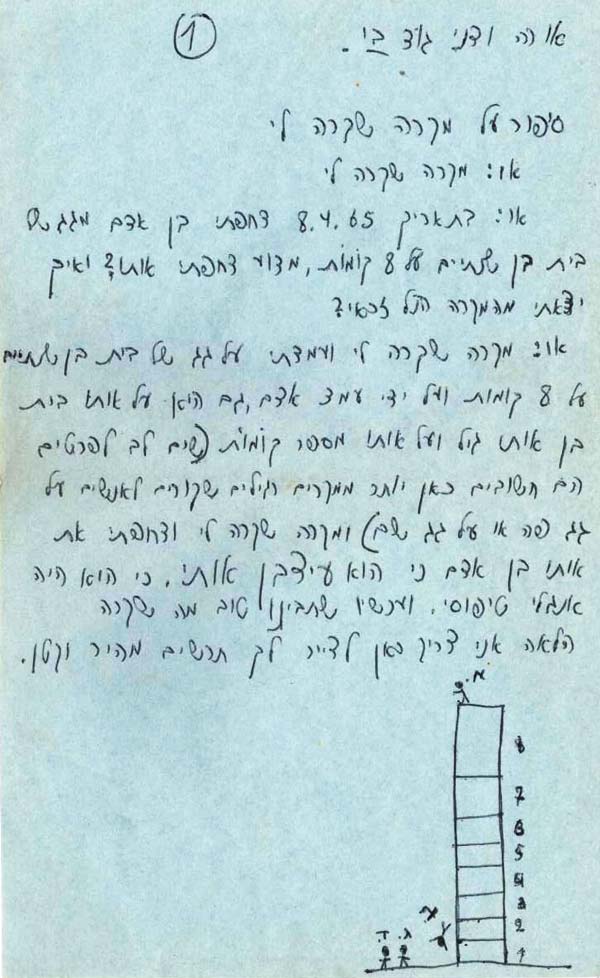 1
אורה ודני גוד ביי.
סיפור על מקרה שקרה לי
או: מקרה שקרה לי
או: בתאריך 8.4.65 דחפתי בן אדם מגג של
בית בן שנתיים על 8 קומות, מדוע דחפתי אותו? ואיך
יצאתי מהמקרה הנ"ל זכאי?
או: מקרה שקרה לי ועמדתי על גג של בית בן שנתיים
על 8 קומות ועל ידי עמד אדם, גם הוא על אותו בית
בן אותו גיל ועל אותו מספר קומות (שים לב לפרטים
הם חשובים כאן יותר ממקרים רגילים שקורים לאנשים על
גג פה או על גג שם) ומקרה שקרה לי ודחפתי את
אותו בן אדם כי הוא עיצבן אותי, כי הוא היה
אנגלי טיפוסי. ועכשיו שתבינו טוב מה שקרה
הלאה אני צריך כאן לצייר לך תרשים מהיר וקטן.
א.
8
7
6
5
4
3
2
1
ג.
ד.